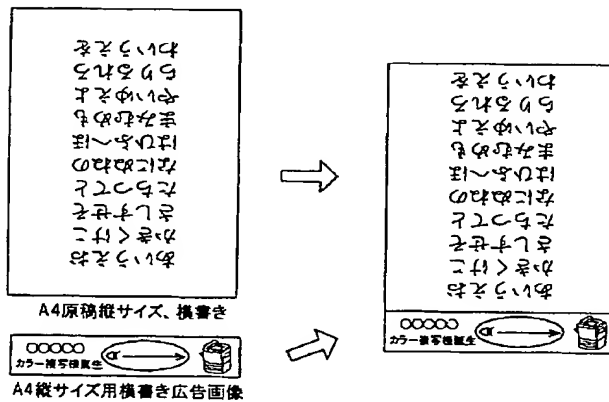 あいうえお
かきくけこ
さしすせそ
たちつてと
なにぬねの
はひふへほ
まみむめも
やいゆえよ
らりるれろ
わいうえを
A4原稿縦サイズ、横書き
○○○○○
カラー複写機誕生
A4縦サイズ用横書き広告画像
あいうえお
かきくけこ
さしすせそ
たちつてと
なにぬねの
はひふへほ
まみむめも
やいゆえよ
らりるれろ
わいうえを
○○○○○
カラー複写機誕生